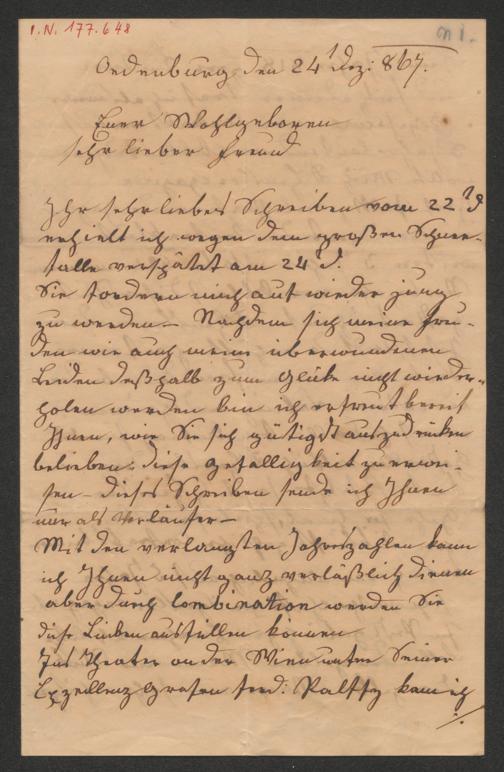 I.N. 177.648
Oedenburg den 24t Dez: 867.
Euer Wohlgeboren
sehr lieber Freund
Ihr sehr liebes Schreiben vom 22t d
erhielt ich wegen dem großen Schnee-
falle verspätet am 24t d.
Sie fordern mich auf wieder jung
zu werden – Nachdem sich meine Freu-
den wie auch meine überwundenen
Leiden deßhalb zum Glücke nicht wieder-
holen werden bin ich erfreut bereit
Ihnen, wie Sie sich gütigst auszudrücken
belieben: diese Gefälligkeit zu erwei-
sen – dieses Schreiben sende ich Ihnen
nur als Vorläufer –
Mit den verlangten Jahreszahlen kann
ich Ihnen nicht ganz verläßlich dienen
aber durch Combination werden Sie
diese Lücken ausfüllen können
Ins Theater an der Wien unter Seiner
Exzellenz Grafen Ferd: Palffy kam ich